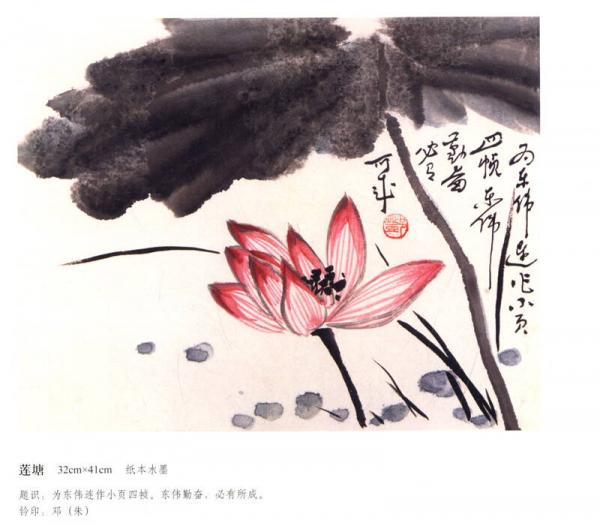 为东伟连作小页
四帧东伟
勤奋
必有
所成
莲塘 32cm×41cm 纸本水墨
题识：为东伟连作小页四帧。东伟勤奋，必有所成。
钤印：邓（朱）